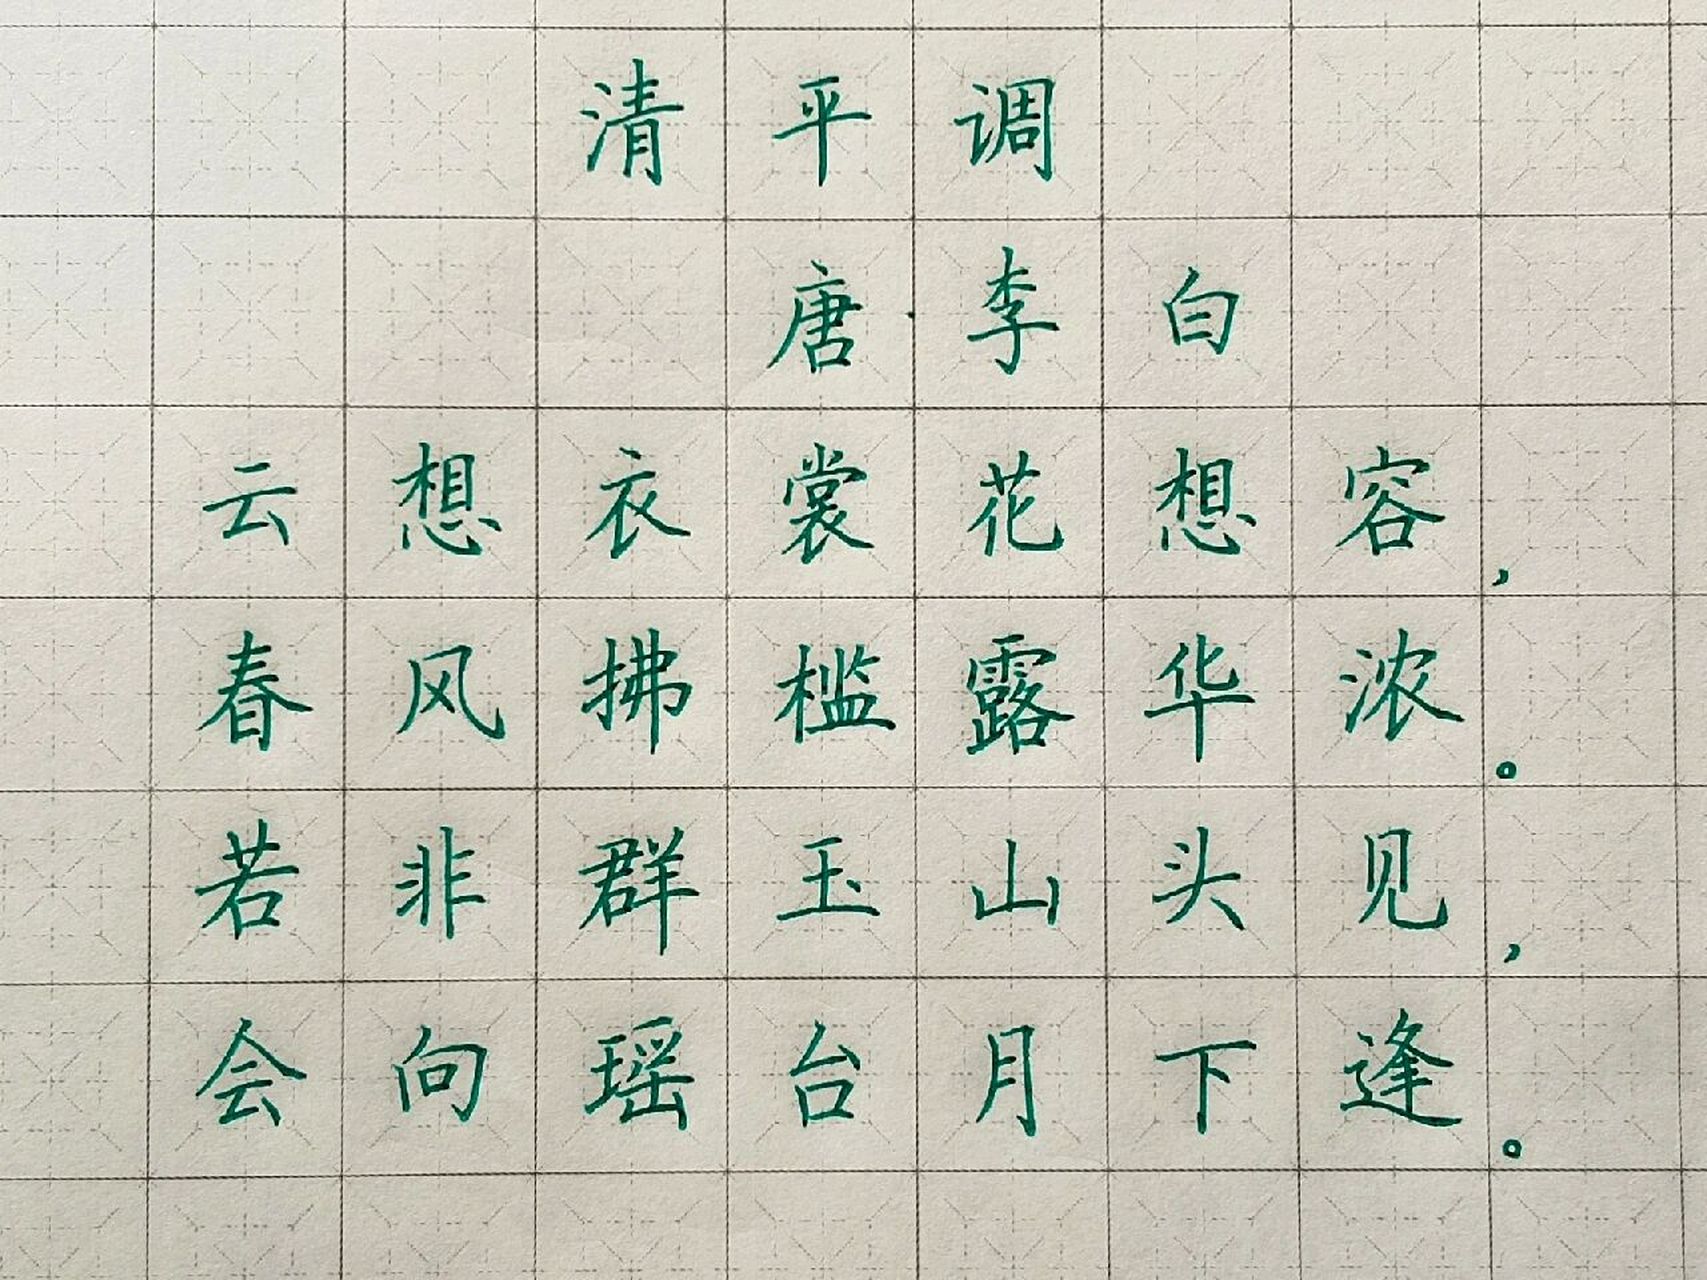 清平调
唐·李白
云想衣裳花想容，
春风拂槛露华浓。
若非群玉山头见，
会向瑶台月下逢。